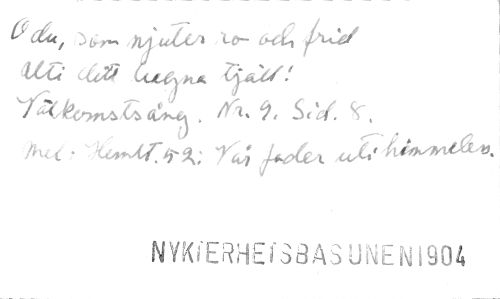 O du, som njuter ro och frid
uti ditt lugna tjäll!
Välkomstsång. Nr. 9. Sid. 8.
Mel: Hemlt. 52: Vår fader uti himmelen.
NYKTERHETSBASUNEN 1904